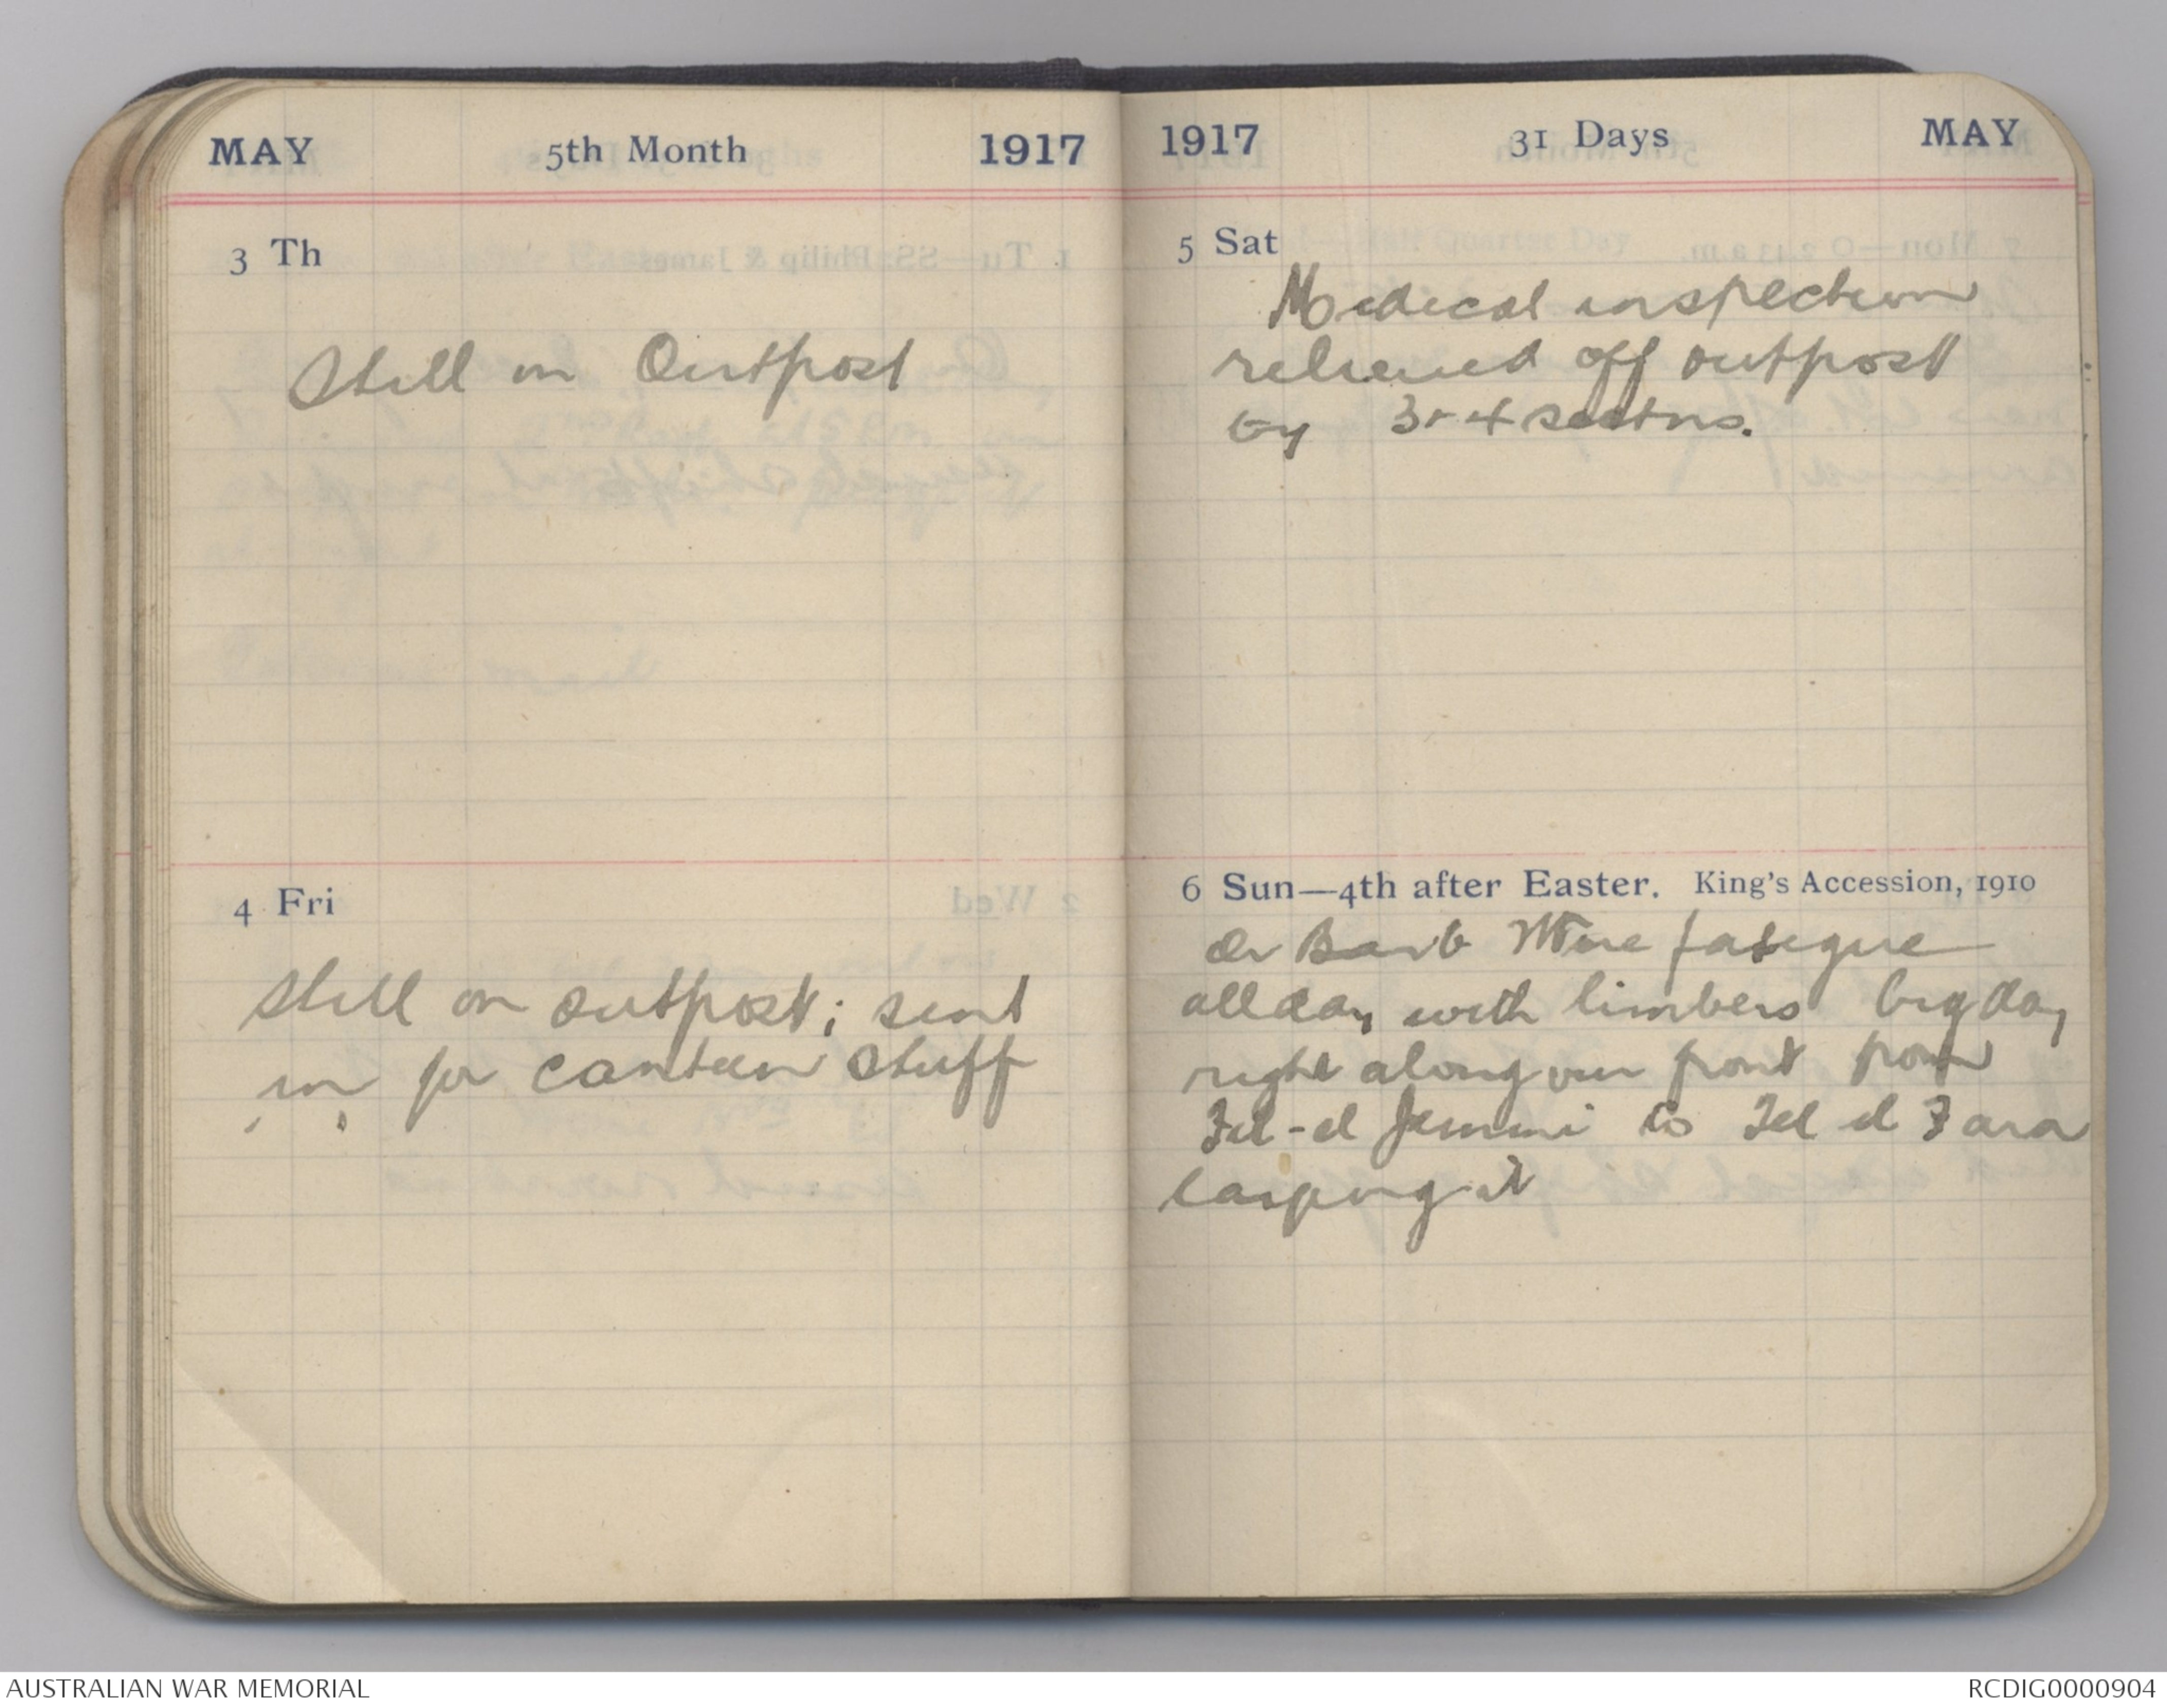 MAY 5th Month 1917
3 Th
Still on Outpost
4 Fri
Still on outpost; sent
in for canteen stuff
1917 31 Days MAY
5 Sat
Medical inspection
relieved off outpost
by 3 + 4 sectns.
6 Sun—4th after Easter. King's Accession, 1910
On Barb Wire fatigue
all day with limbers big day
right along our front from
Tel-el Jemmi to Tel el Fara
it
AUSTRALIAN WAR MEMORIAL
RCDIG0000904